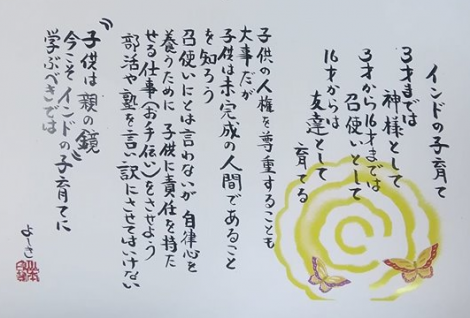 インドの子育て
3才までは
神様として
3才から16才までは
召使いとして
16才からは
友達として
育てる
子供の人権を尊重することも
大事だが
子供は未完成の人間であること
を知ろう
召使いにとは言わないが 自律心を
養うために 子供に責任を持た
せる仕事(お手伝い)をさせよう
部活や塾を言い訳にさせてはいけない
"子供は親の鏡"
今こそインドの子育てに
学ぶべきでは
よーき